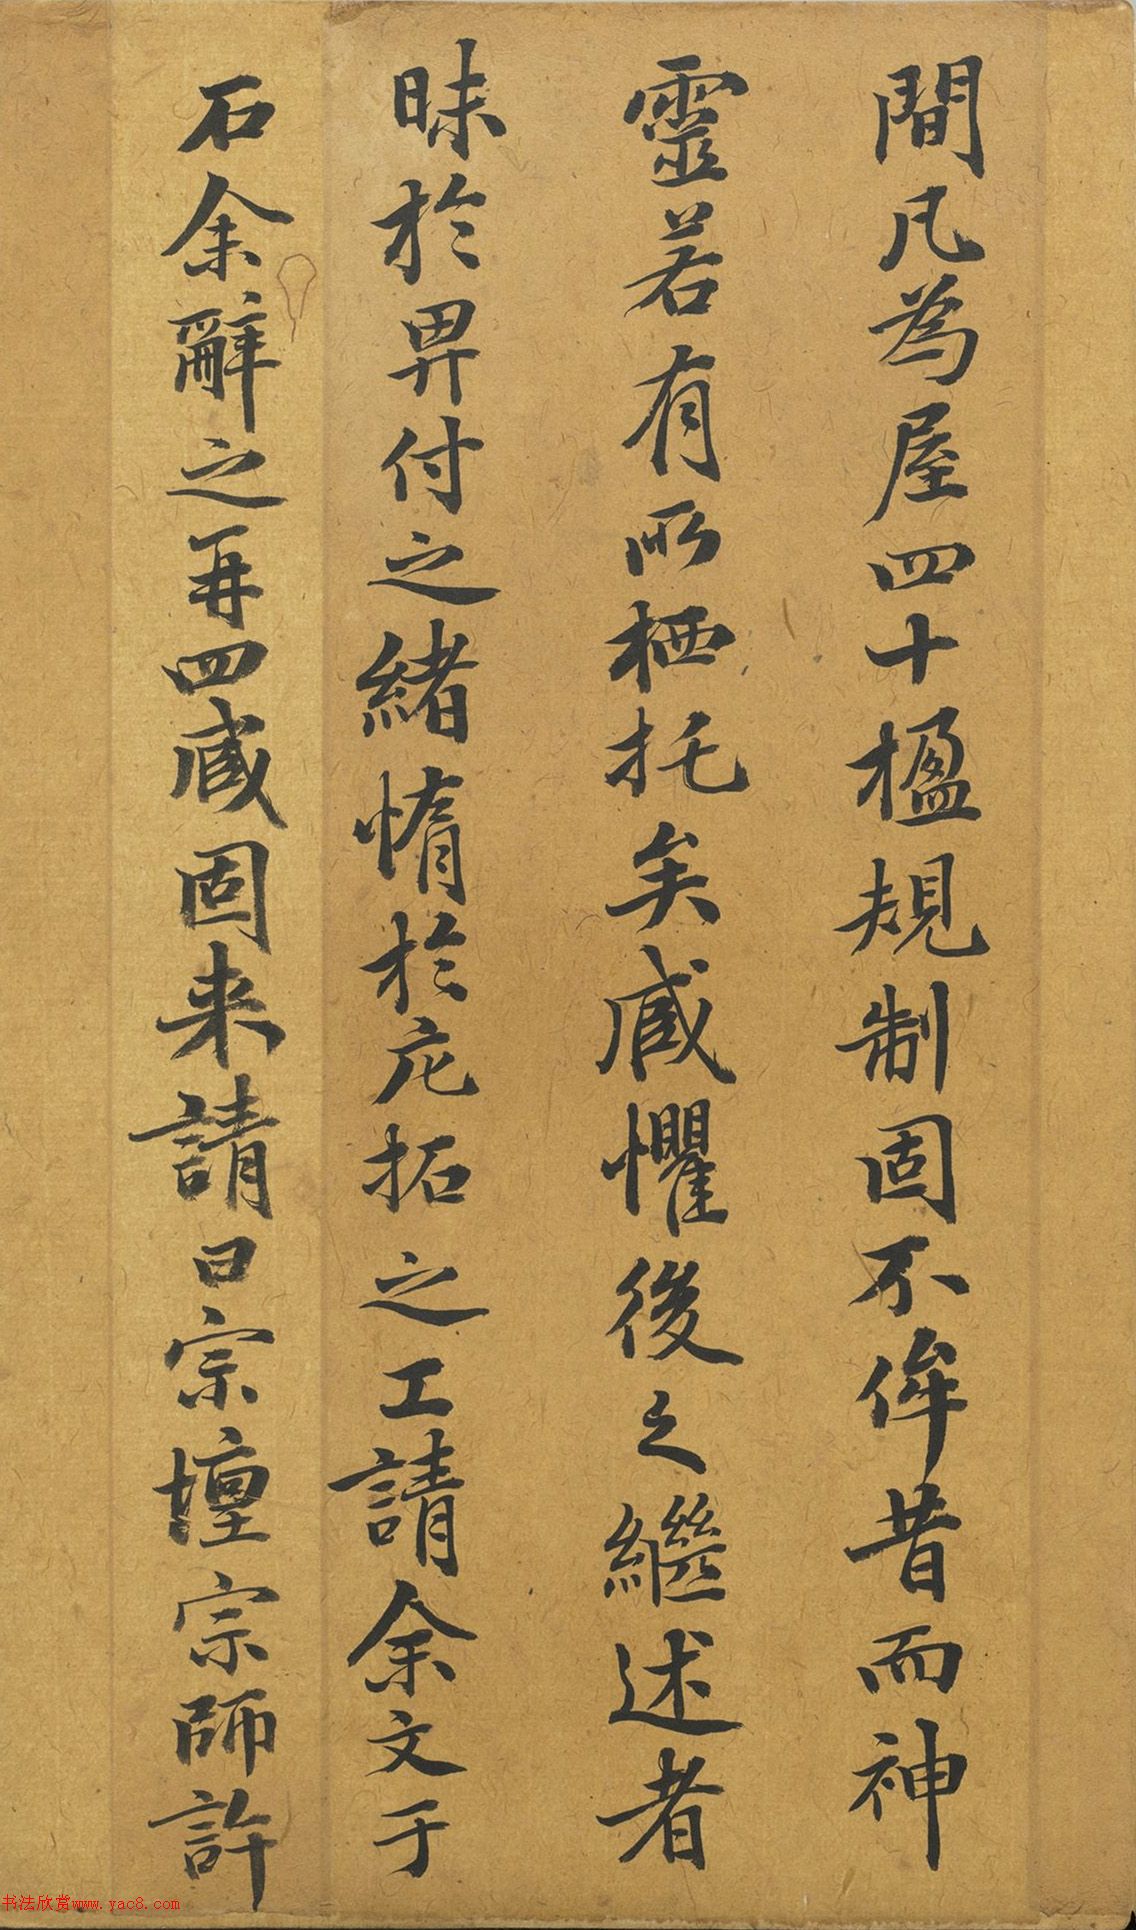 間凡為屋四十楹規制固不侔昔而神
靈若有所栖托矣臧懼後之繼述者
昧於畀付之緒惰於庀拓之工請余文于
石余辭之再四臧固来請曰宗壇宗師許
书法欣赏www.yac8.com